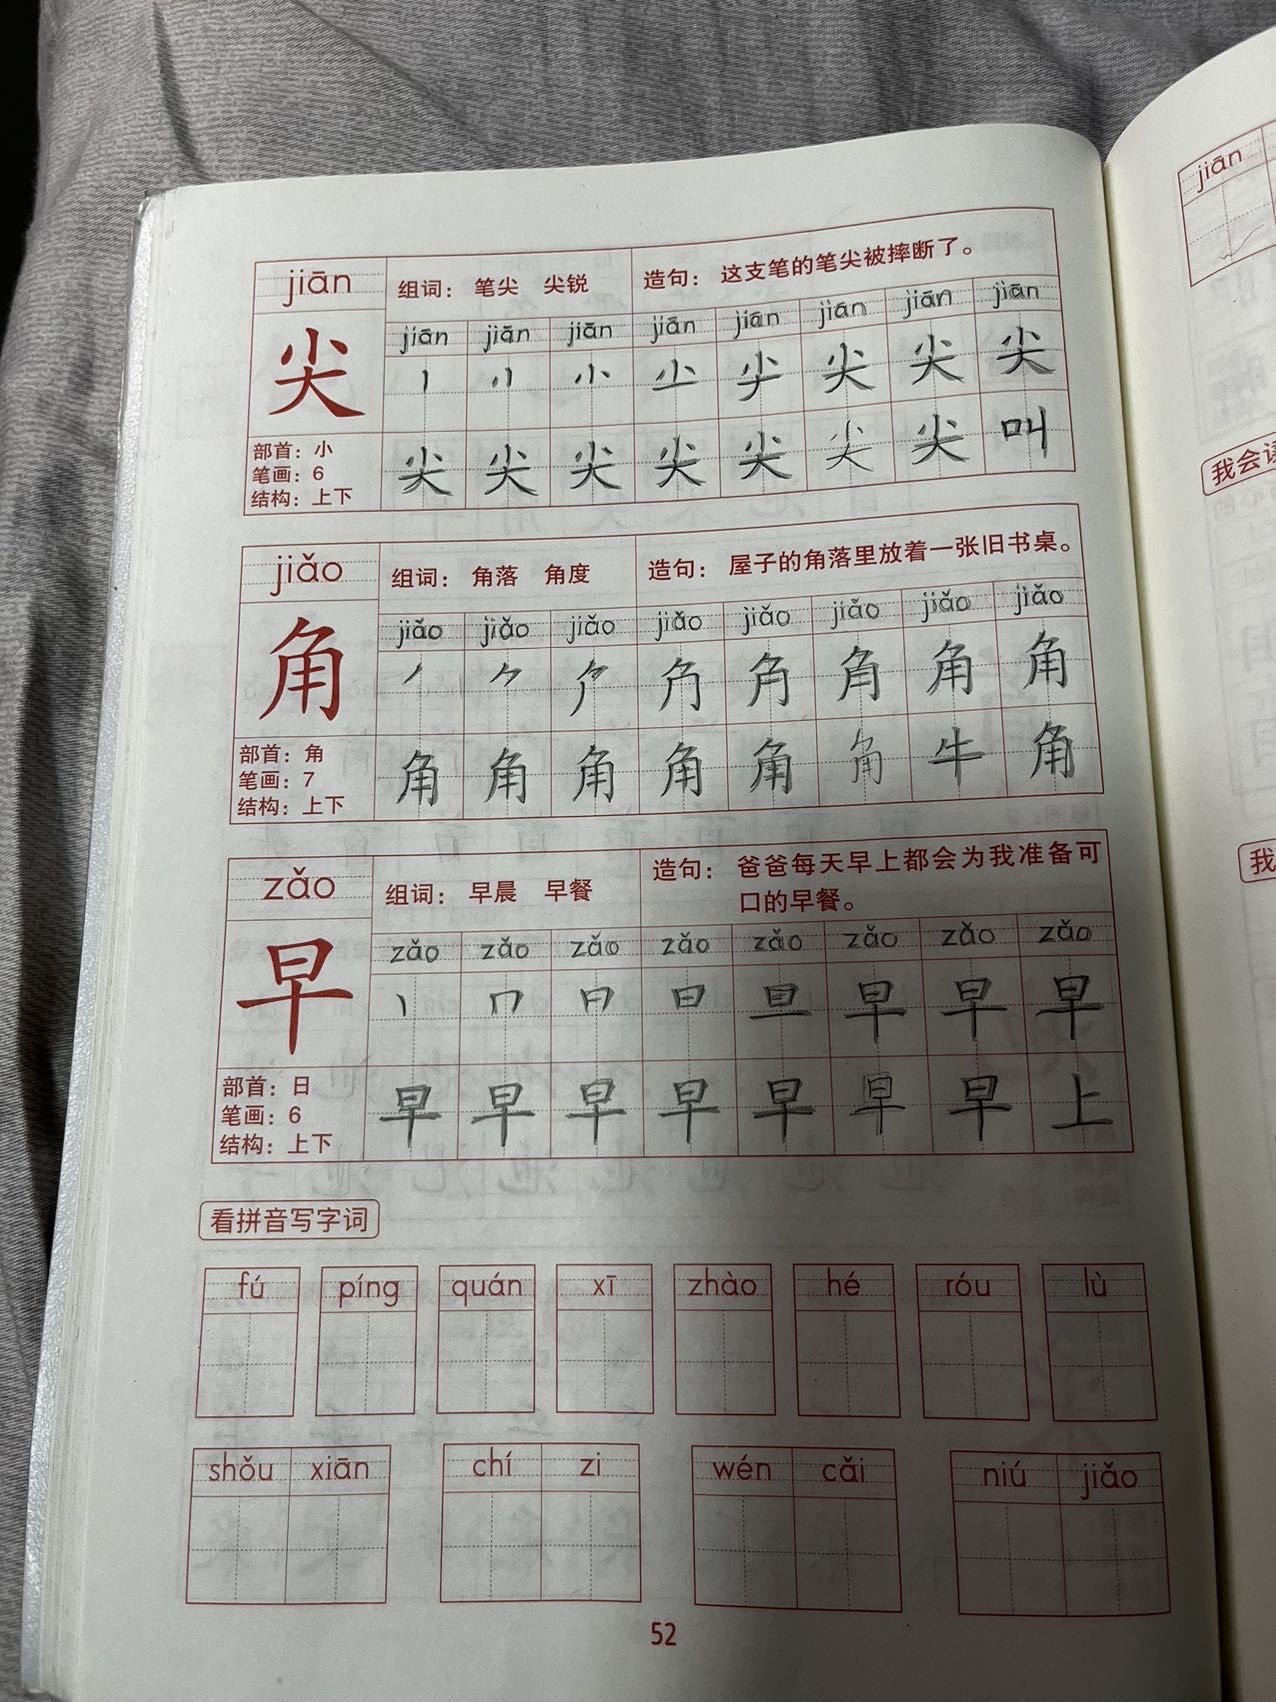 jiān 组词：笔尖 尖锐 造句：这支笔的笔尖被摔断了。
jiān jiān jiān jiān jiān jiān jiān jiān
尖 丨 小 尖 尖 尖
部首：小
笔画：6
结构：上下
尖 尖 尖 尖 尖 尖 尖 叫
jiǎo 组词：角落 角度 造句：屋子的角落里放着一张旧书桌。
jiǎo jiǎo jiǎo jiǎo jiǎo jiǎo jiǎo jiǎo
角 丿 𠂊 角 角 角
部首：角
笔画：7
结构：上下
角 角 角 角 角 角 牛 角
zǎo 组词：早晨 早餐 造句：爸爸每天早上都会为我准备可
口的早餐。
zǎo zǎo zǎo zǎo zǎo zǎo zǎo zǎo
早 丨 冂 日 日 旦 早 早 早
部首：日
笔画：6
结构：上下
早 早 早 早 早 早 早 上
看拼音写字词
fú píng quán xī zhào hé róu lù
shǒu xiān chí zi wén cǎi niú jiǎo
52
jiān
我会读
我